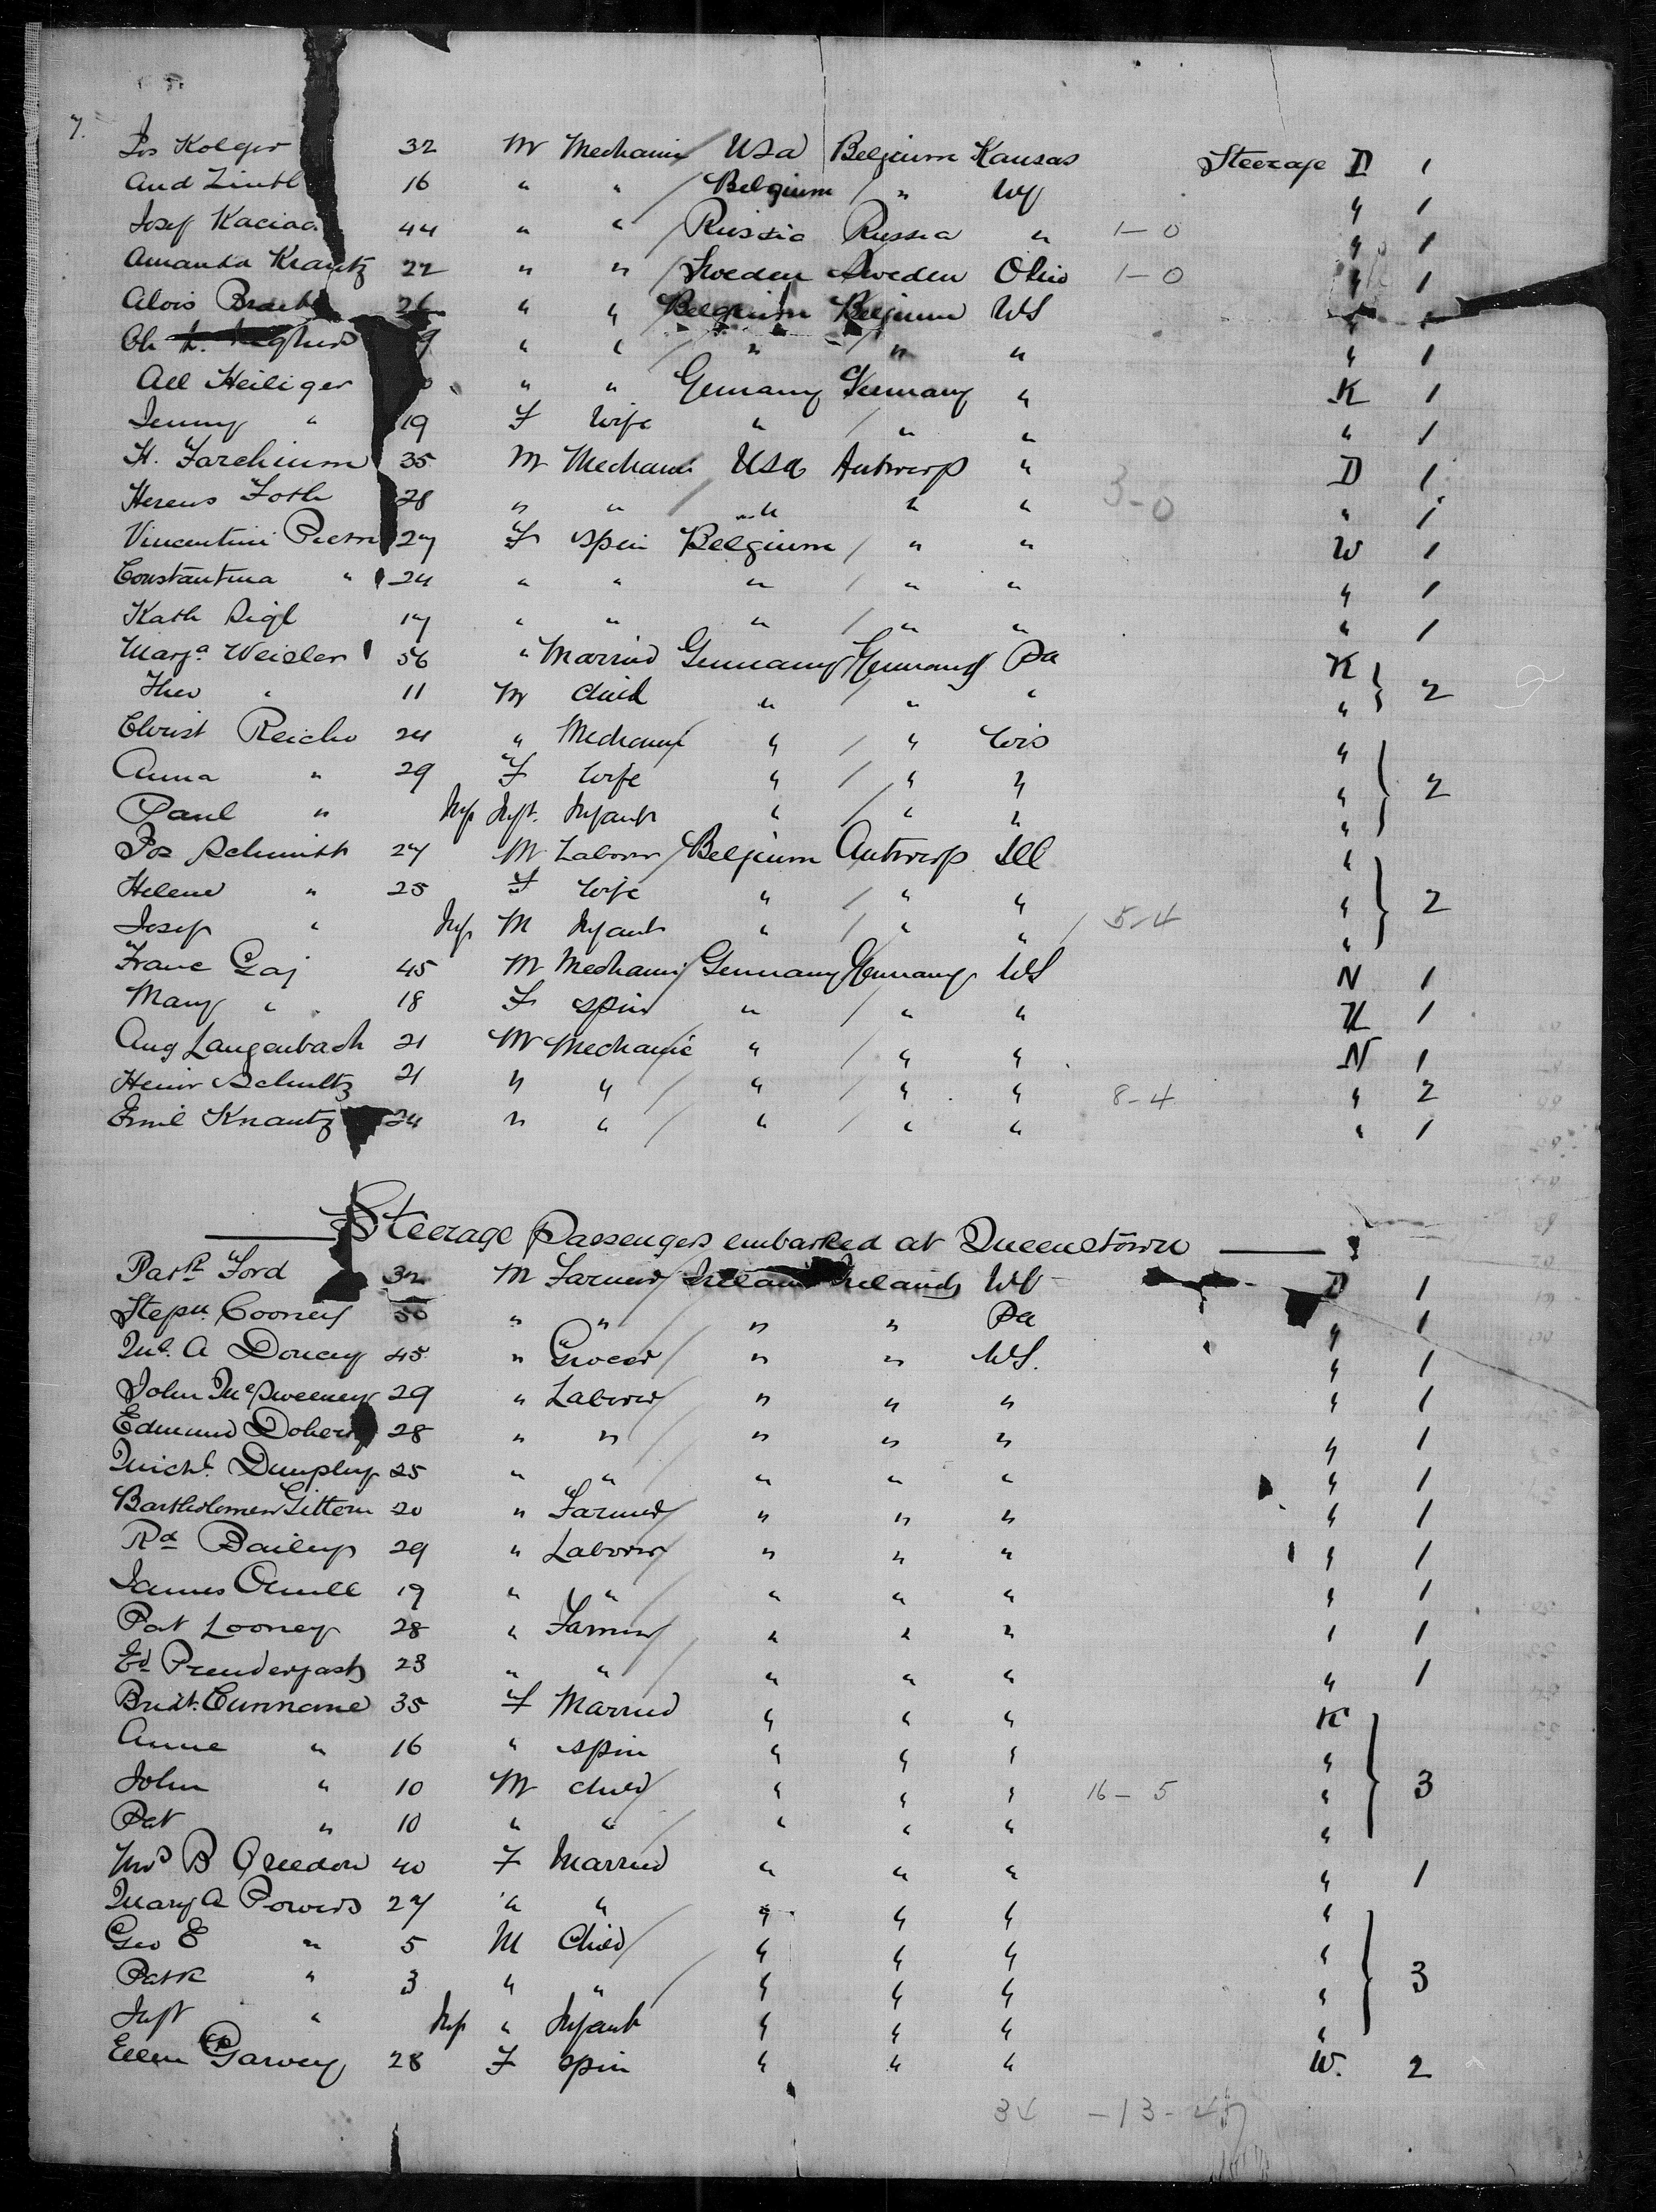 7.
Jos Kolger 32 M Mechanic USA Belgium Kansas Steerage D 1
Aud 16 " " Belgium " WY " 1
Josef 44 " " Russia Russia " 1-0 " 1
Amanda Krantz 22 " " Sweden Sweden Ohio 1-0 " 1
Alois 26 " " Belgium Belgium WS " 1
Ch 9 " " " " " " 1
Heiliger " " Germany Germany " K 1
Jenny " 19 F Wife " " " " 1
H. 35 M Mechanic USA Antwerp " D 1
28 " " " " " 3-0 " 1
27 F Spin Belgium " " W 1
Constantina " 24 " " " " " " 1
Kath Sigl 17 " " " " " " 1
Marga. Weisler 56 " Married Germany Germany Pa K
Theo " 11 M Child " " " " 2
Christ Reicho 24 " Mechanic " " Wis "
Anna " 29 F Wife " " " " 2
Paul " Inf Inft. Infant " " " "
Jos Schmitt 27 M Laborer Belgium Antwerp Ill "
Helene " 25 F Wife " " " " 2
Josef " Inf M Infant " " " 5-4 "
Franc Gaj 45 M Mechanic Germany Germany WS N 1
Mary " 18 F Spin " " " K 1
Aug Langenbach 21 M Mechanic " " " N 1
Heinr Schultz 21 " " " " " 8-4 " 2
Emil Knautz 24 " " " " " " 1
Steerage Passengers embarked at Queenstown
Patk Ford 32 M Farmer Ireland Ireland D 1
Stepn. Cooney 50 " " " " Pa " 1
A 45 " Grocer " " WS. " 1
John McSweeney 29 " Laborer " " " " 1
Edmund Doherty 28 " " " " " " 1
Michl. Dunphy 25 " " " " " " 1
Bartholomew Gittern 20 " Farmer " " " " 1
Rd Bailey 29 " Laborer " " " " 1
James 19 " " " " " " 1
Pat Looney 28 " Farmer " " " " 1
Ed Prendergast 23 " " " " " " 1
Bridt. Cunnane 35 F Married " " " K
Anne " 16 " Spin " " " "
John " 10 M Child " " " 16-5 " 3
Pat " 10 " " " " " "
Mrs B Creedon 40 F Married " " " " 1
Mary A Powers 27 " " " " " "
Geo E " 5 M Child " " " "
Patk " 3 " " " " " " 3
Inft " Inf " Infant " " " "
Ellen Garvey 28 F Spin " " " W. 2
34 -13-